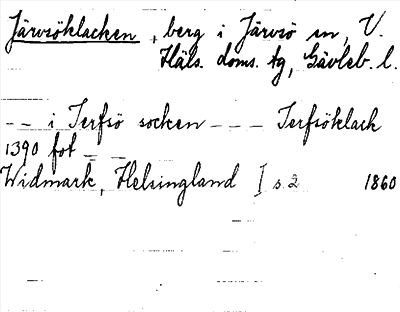 Järvsöklacken, berg i Järvsö sn, V.
Häls. doms. tg, Gävleb. l.
-- i Jerfsö socken --- Jerfsöklack
1390 fot --
Widmark, Helsingland I s. 2 1860